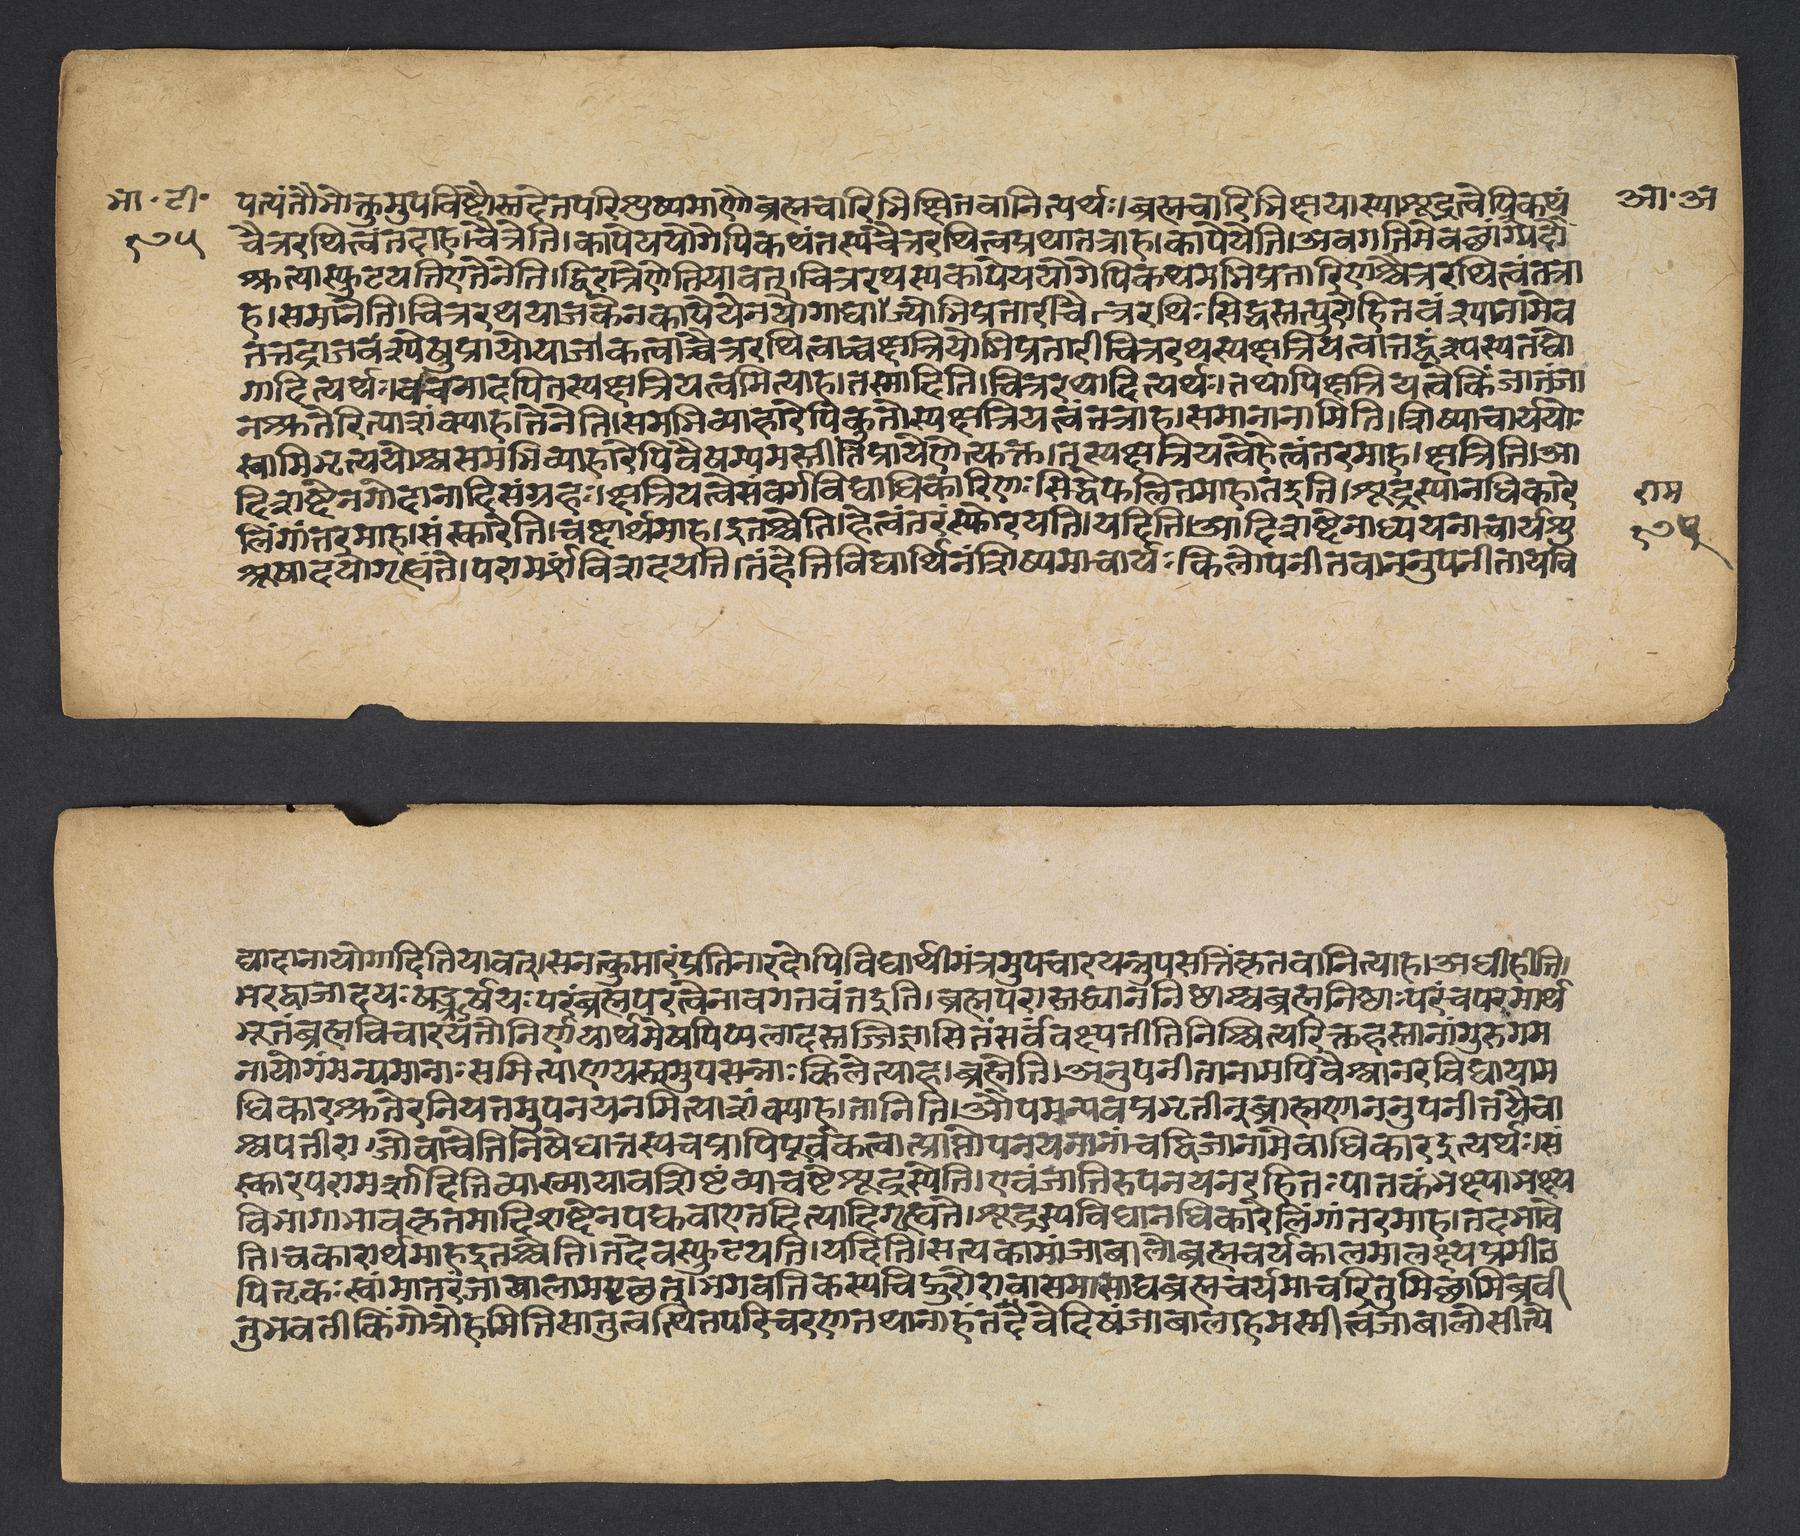 भा॰ टी॰
१७५
पत्यंतौभोक्तुमुपविष्टौसूदेनपरिशुष्यमाणौब्रह्मचारिभिक्षितवानित्यर्थः।ब्रह्मचारिभिक्षयास्याशूद्रत्वेपिकथं
चैत्ररथित्वंतदाह।चैत्रेति।कापेययोगेपिकथंतस्यचैत्ररथित्वप्रथातत्राह।कापेयेति।अवगतिमेवछांग्यदो
क्षत्यास्फुटयतिएतेनेति।द्विरात्रेणेतियावत्।चित्ररथस्यकापेययोगेपिकथमभिप्रतारिणश्चैत्ररथित्वंतत्रा
ह।समानेति।चित्ररथयाजकेनकापेयेनयोगाद्याज्योभिप्रतारीचैत्ररथिःसिद्धस्तत्पुरोहितवंश्यानामेव
तत्तद्राजवंश्येषुप्रायोयाजकत्वाच्चैत्ररथित्वाच्चक्षत्रियोभिप्रतारीचित्ररथस्यक्षत्रियत्वात्तद्वंश्यस्यतद्यो
गादित्यर्थः।वचनादपितस्यक्षत्रियत्वमित्याह।तस्मादिति।चित्ररथादित्यर्थः।तथापिक्षत्रियत्वेकिंजातंजा
नश्रुतेरित्याशंक्याह।तेनेति।समभिव्याहारेपिकुतोस्यक्षत्रियत्वंतत्राह।समानानामिति।शिष्याचार्ययोः
स्वामिभृत्ययोश्चसमभिव्याहारेपिवैषम्यमस्तीतिप्रायेणेत्युक्तं।तस्यक्षत्रियत्वेहेत्वंतरमाह।क्षत्रिति।आ
दिशब्देनगोदानादिसंग्रहः।क्षत्रियत्वेसंवर्गविद्याधिकारिणःसिद्धेफलितमाहातइति।शूद्रस्यानधिकारे
लिंगांतरमाह।संस्कारेति।चशब्दार्थमाह।इतश्चेति।हेत्वंतरंस्फोरयति।यदिति।आदिशब्देनाध्ययनाचार्यशु
श्रूषादयोगृह्यंते।परामर्शंविशदयति।तंहेतिविद्यार्थिनंशिष्यमाचार्यःकिलोपनीतवाननुपनीतायवि
आ॰अ
राम
१७५
द्यादानायोगादितियावत्।सनत्कुमारंप्रतिनारदोपिविद्यार्थीमंत्रमुपचारयन्नुपसत्तिंकृतवानित्याह।अधीहीति।
भरद्वाजादयःषडृषयःपरंब्रह्मपरत्वेनावगतवंतइति।ब्रह्मपरास्तद्ध्याननिष्ठाश्चब्रह्मनिष्ठाःपरंचपरमार्थ
भूतंब्रह्मविचारयंतोनिर्णयार्थमेषपिप्पलादस्तज्जिज्ञासितंसर्वंवक्ष्यतीतिनिश्चित्यरिक्तहस्तानांगुरुगम
नायोगंमन्यमानाःसमित्पाणयस्तमुपसन्नाःकिलेत्याह।ब्रह्मेति।अनुपनीतानामपिवैश्वानरविद्यायाम
धिकारश्रुतेरनियतमुपनयनमित्याशंक्याह।तानिति।औपमन्यवप्रभृतीन्ब्राह्मणाननुपनीतयैवा
श्वपतीराजोवाचेतिनिषेधात्तस्यचप्राप्तिपूर्वकत्वात्प्राप्तोपनयनानांचद्विजानामेवाधिकारइत्यर्थः।सं
स्कारपरामर्शादितिव्याख्यायावशिष्टंव्याचष्टेशूद्रस्येति।एवंजातिरुपनयनरहितःपातकंभक्ष्याभक्ष्य
विभागाभावकृतमादिशब्देनपक्ववाएतदित्यादिगृह्यते।शूद्रस्यविद्यानधिकारेलिंगांतरमाह।तदभावे
ति।चकारार्थमाहइतश्चेति।तदेवस्फुटयति।यदिति।सत्यकामोजाबालोब्रह्मचर्यकालमालक्ष्यप्रमीत
पितृकःस्वांमातरंजाबालामपृछत्।भगवतिकस्यचिद्गुरोरावासमासाद्यब्रह्मचर्यमाचरितुमिछामिब्रवी
तुभवतीकिंगोत्रोहमितिसातुत्वत्पितपरिचरणतयानाहंतद्वेदिषंजाबालाहमस्मीत्वंजाबालोसीत्ये